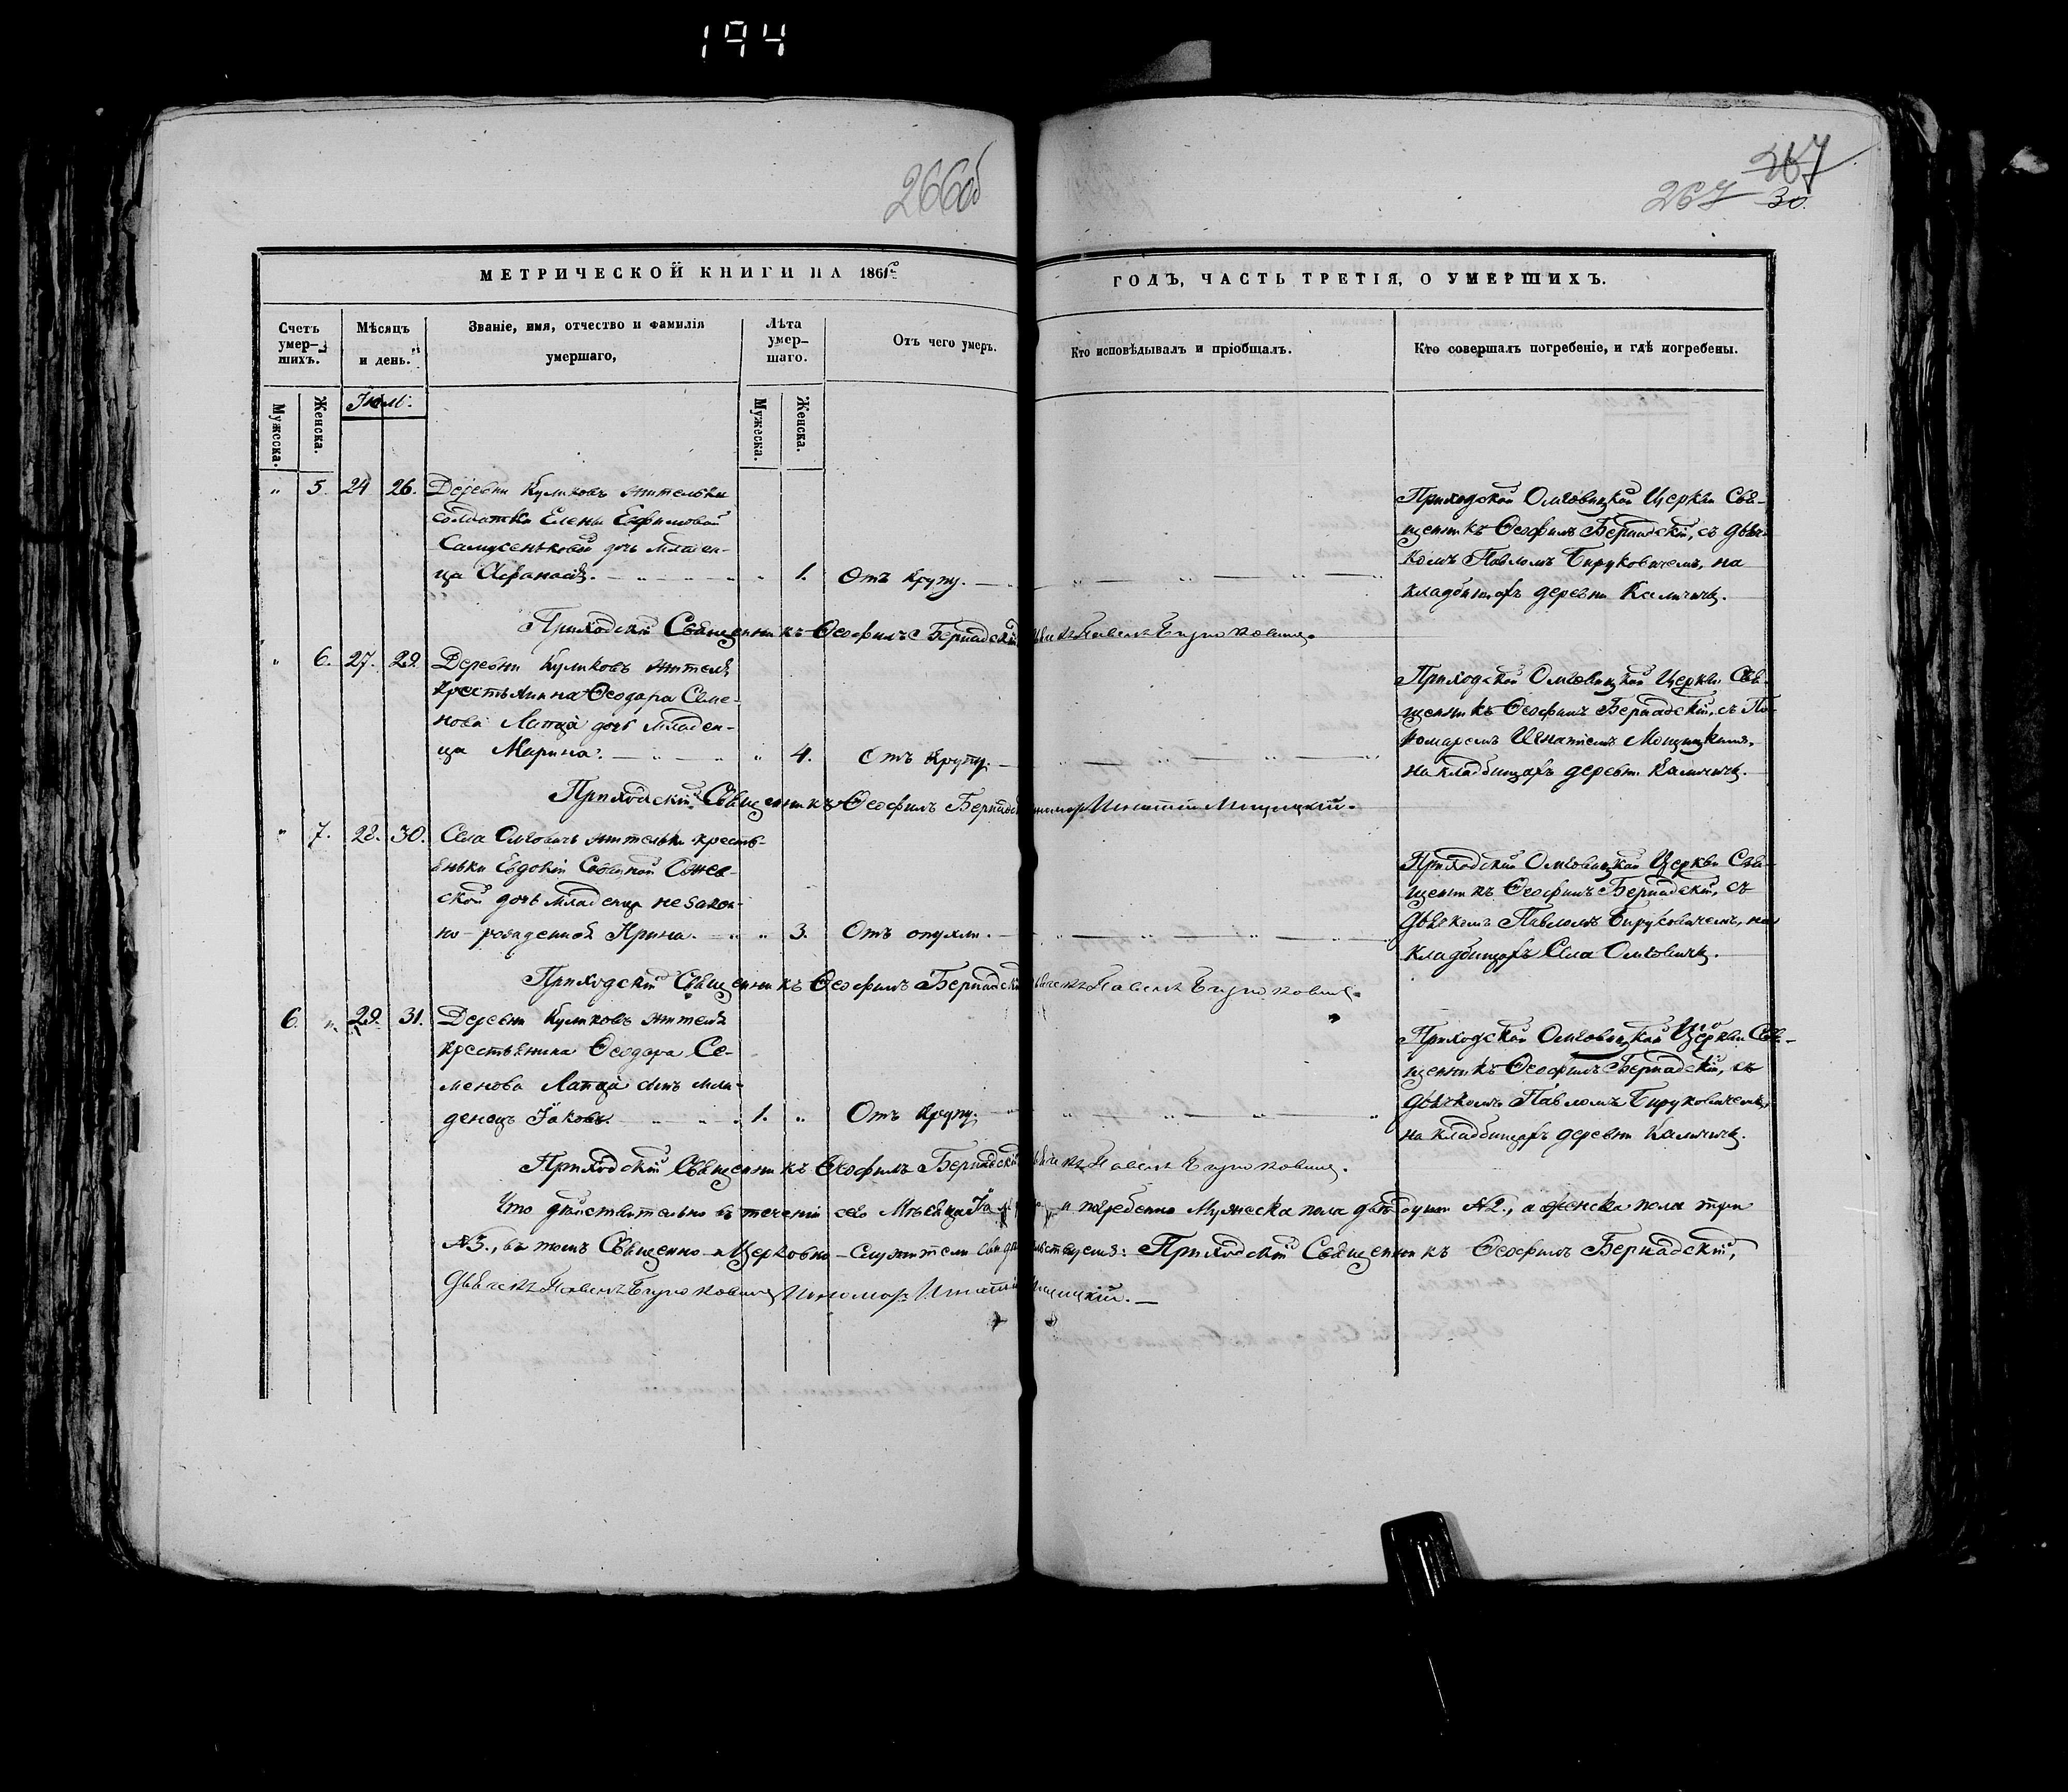 194
266об
267
267 30
МЕТРИЧЕСКОЙ КНИГИ НА 1861го ГОДЪ, ЧАСТЬ ТРЕТІЯ, О УМЕРШИХЪ.
Счетъ умер-шихъ.
Мѣсяцъ и день.
Званіе, имя, отчество и фамилія умершаго,
Лѣта умер-шаго.
Отъ чего умеръ.
Кто исповѣдывалъ и пріобщалъ.
Кто совершалъ погребеніе, и гдѣ погребены.
Мужеска. Женска. Мужеска. Женска.
" 5. 24 26. Деревни Куликовъ жительки
солдатки Елены Ефимовой
Самусеньковой дочь младен-
ца Афанасія. " 1. Отъ крупу.
Приходской Омговицкой Церкви Свя-
щенникъ Ѳеофилъ Бернадскій, съ дьяч-
комъ Павломъ Бируковичемъ, на
кладбищахъ деревни Каличичь.
Приходскій Священникъ Ѳеофилъ Бернадскій Павелъ Бируковичь.
" 6. 27. 29 Деревни Куликовъ жителя
крестьянина Ѳеодора Семе-
нова Лапця дочь младен-
ца Марина. " 4. Отъ крупу.
Приходской Омговицкой Церкви Свя-
щенникъ Ѳеофилъ Бернадскій, съ По-
номаремъ Игнатіемъ Мощицкимъ,
на кладбищахъ деревни Каличичь.
Приходскій Священникъ Ѳеофилъ Бернадскій Игнатій Мощицкій.
" 7. 28. 30. Села Омговичь жительки кресть-
янки Евдокіи Сажев-
ской дочь младенца незакон-
но-рожденной Ирина. " 3. Отъ опухли.
Приходской Омговицкой Церкви Свя-
щенникъ Ѳеофилъ Бернадскій, съ
дьячкомъ Павломъ Бируковичемъ, на
кладбищахъ Села Омговичь.
Приходскій Священникъ Ѳеофилъ Бернадскій Павелъ Бируковичь.
6. " 29. 31. Деревни Куликовъ жителя
крестьянина Ѳеодора Се-
менова Лапця сынъ мла-
денецъ Іаковъ. 1. " Отъ крупу.
Приходской Омговицкой Церкви Свя-
щенникъ Ѳеофилъ Бернадскій, съ
дьячкомъ Павломъ Бируковичемъ,
на кладбищахъ деревни Каличичь.
Приходскій Священникъ Ѳеофилъ Бернадскій Павелъ Бируковичь.
Что дѣйствительно въ теченіи сего Мѣсяца погребенно Мужеска пола двѣ души №2., а женска пола три
№3., въ томъ Священно-Церковно-Служители свидѣтельствуемъ: Приходскій Священникъ Ѳеофилъ Бернадскій,
Дьячекъ Павелъ Бируковичь, Игнатій Мощицкій.